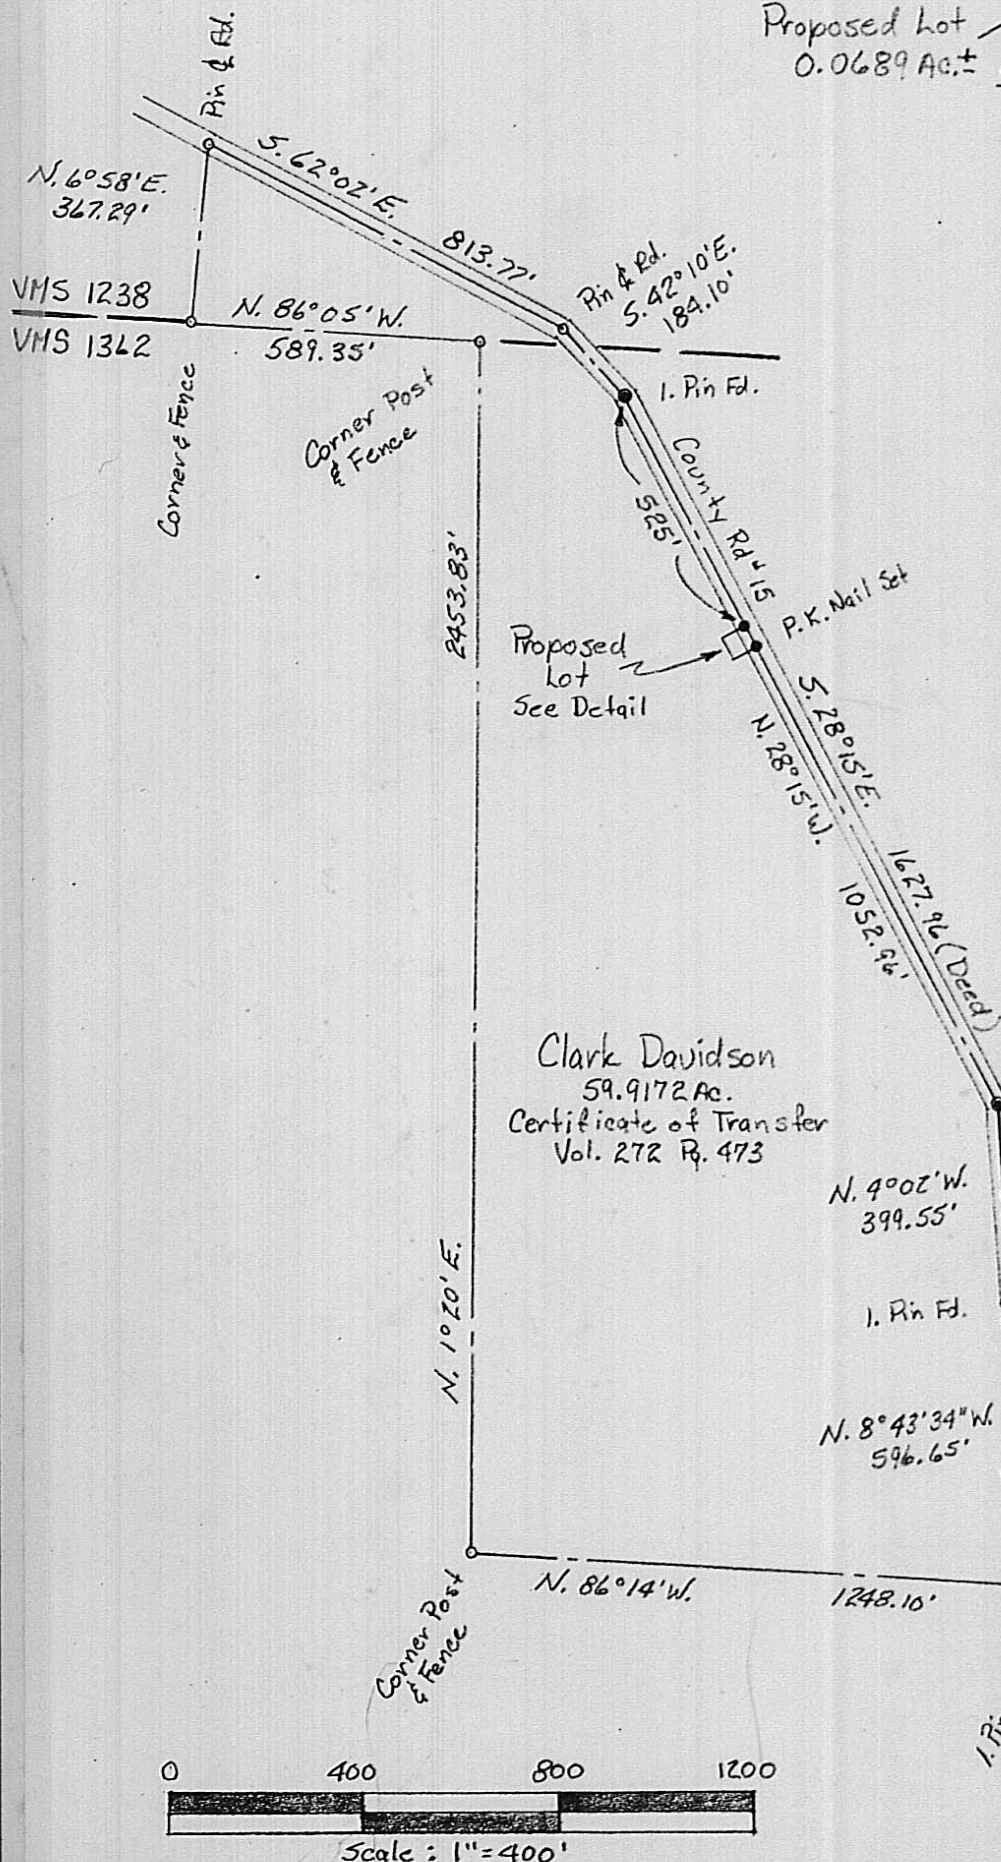 Proposed Lot
0.0689 Ac.±
Pin ₵ Rd.
N. 6°58'E.
367.29'
S. 62°02'E.
813.77'
Pin ₵ Rd.
S. 42°10'E.
184.10'
VMS 1238
VMS 1362
N. 86°05'W.
589.35'
1. Pin Fd.
Corner & Fence
Corner Post
& Fence
County Rd #15
525'
2453.83'
P.K. Nail Set
Proposed
Lot
See Detail
S. 28°15'E.
1627.96 (Deed)
N. 28°15'W.
1052.96'
Clark Davidson
59.9172 Ac.
Certificate of Transfer
Vol. 272 Pg. 473
N. 4°02'W.
399.55'
N. 1°20'E.
1. Pin Fd.
N. 8°43'34"W.
596.65'
N. 86°14'W.
1248.10'
Corner Post
& Fence
0 400 800 1200
Scale : 1"=400'